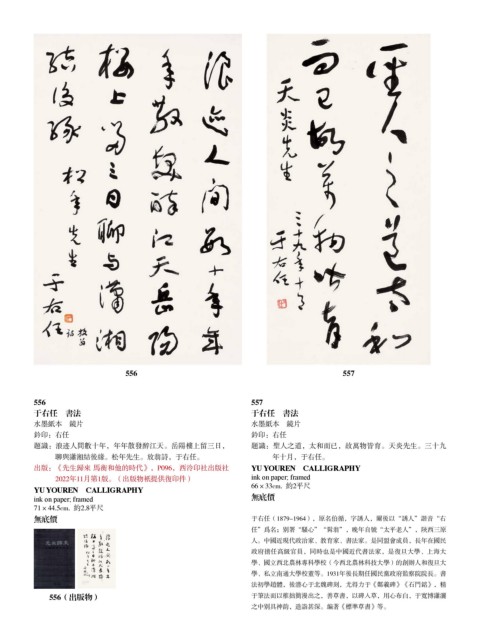 浪迹人間數十年年
年散發醉江天岳陽
樓上留三日聊與瀟湘
結後緣 松年先生
于右任 放翁詩
聖人之道太和
而已故萬物皆育
天炎先生 三十九年十月
于右任
556
557
556
于右任 書法
水墨紙本 鏡片
鈐印：右任
題識：浪迹人間數十年，年年散發醉江天。岳陽樓上留三日，
聊與瀟湘結後緣。松年先生。放翁詩，于右任。
出版：《先生歸來 馬衡和他的時代》，P096，西泠印社出版社
2022年11月第1版。（出版物衹提供復印件）
YU YOUREN CALLIGRAPHY
ink on paper; framed
71 × 44.5cm. 約2.8平尺
無底價
556（出版物）
557
于右任 書法
水墨紙本 鏡片
鈐印：右任
題識：聖人之道，太和而已，故萬物皆育。天炎先生。三十九
年十月，于右任。
YU YOUREN CALLIGRAPHY
ink on paper; framed
66 × 33cm. 約2平尺
無底價
于右任（1879~1964），原名伯循，字誘人，爾後以“誘人”諧音“右
任”爲名；別署“騷心”“髯翁”，晚年自號“太平老人”，陝西三原
人。中國近現代政治家、教育家、書法家。是同盟會成員，長年在國民
政府擔任高級官員，同時也是中國近代書法家，是復旦大學、上海大
學、國立西北農林專科學校（今西北農林科技大學）的創辦人和復旦大
學、私立南通大學校董等。1931年後長期任國民黨政府監察院院長。書
法初學趙體，後潛心于北魏碑刻，尤得力于《鄭羲碑》《石門銘》，精
于筆法而以雅拙簡漫出之，善草書。以碑入草，用心布白，于寬博瀟灑
之中別具神韵，造詣甚深。編著《標準草書》等。